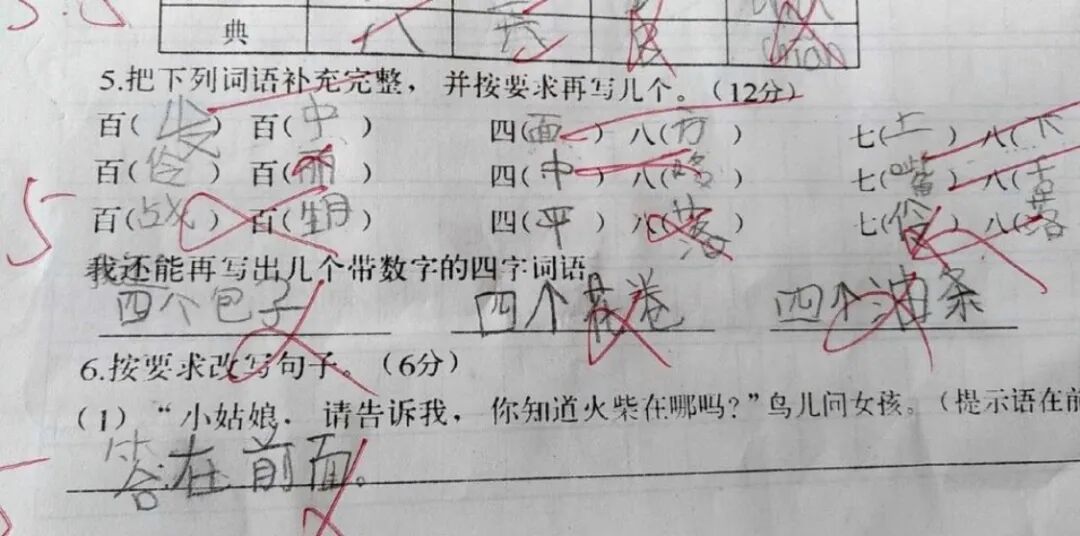 典 八
5.把下列词语补充完整，并按要求再写几个。(12分)
百(发)百(中) 四(面)八(方) 七(上)八(下)
百(伶)百(丽) 四(中)八(路) 七(嘴)八(舌)
百(战)百(明) 四(平)八(落) 七(伶)八(落)
我还能再写出几个带数字的四字词语
四个包子 四个花卷 四个油条
6.按要求改写句子。(6分)
(1)“小姑娘. 请告诉我，你知道火柴在哪吗?”鸟儿问女孩。(提示语在前
答.在前面。
5